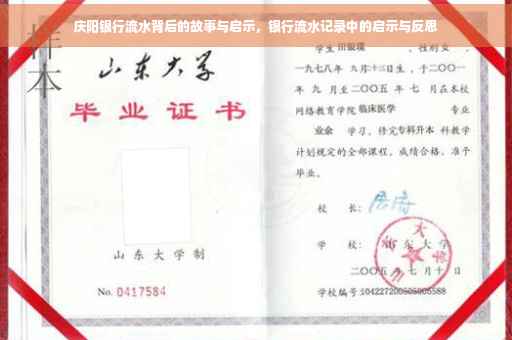 庆阳银行流水背后的故事与启示，银行流水记录中的启示与反思
样本
山东大学
毕业证书
山东大学制
No. 0417584
学生 田银瑞 ，性别女 ，
一九七八年 九月十三日生，于二〇〇一
年 九 月至二〇〇五 年 七 月在本校
网络教育学院 临床医学 专业
业余 学习，修完专科升本 科教学
计划规定的全部课程，成绩合格，准予
毕业。
校 长：
学 校：山东大学
二〇〇五 年 七 月 十 日
学校编号:104227200505005588